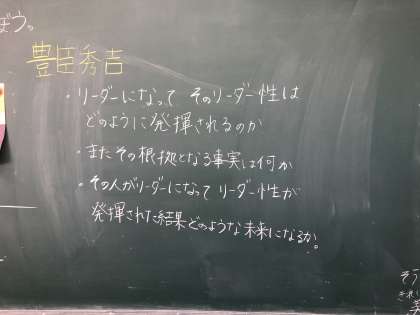 ぼうっ
豊臣秀吉
・リーダーになって そのリーダー性は
どのように発揮されるのか
・またその根拠となる事実は何か
・その人がリーダーになってリーダー性が
発揮された結果どのような未来になるか。
そう